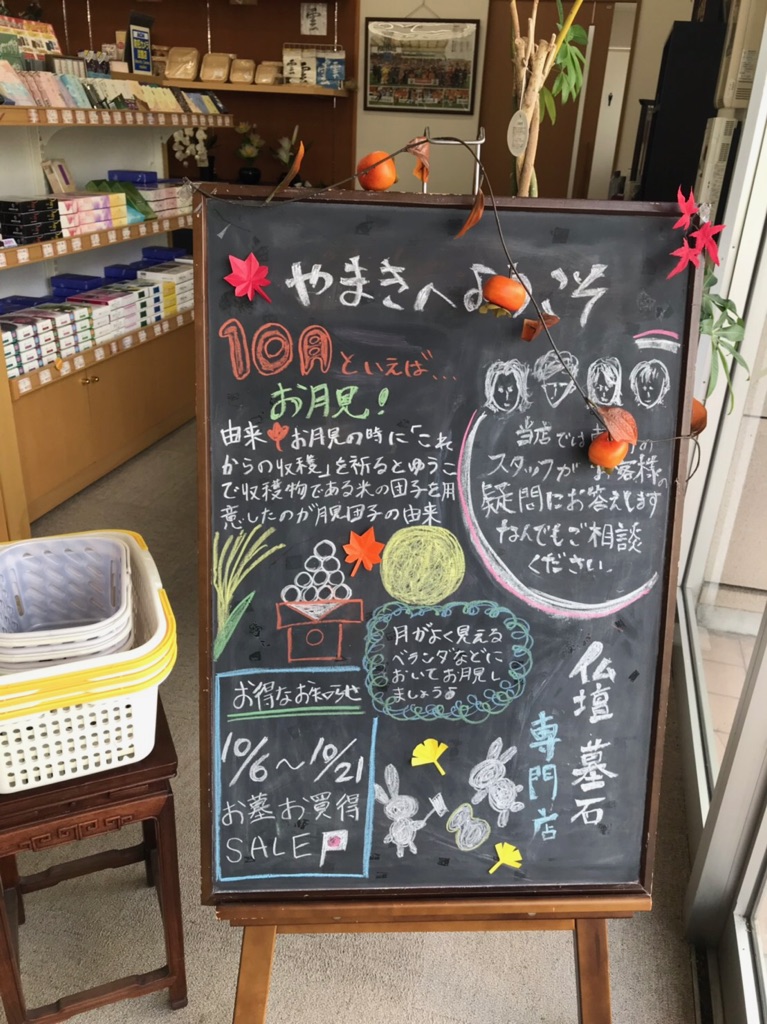 やまきへようこそ
10月といえば…
お月見!
由来 お月見の時に「これ
からの収穫」を祈るとゆうこ
で収穫物である米の団子を用
意したのが月見団子の由来
当店では
スタッフが お客様の
疑問にお答えします
なんでもご相談
ください。
月がよく見える
ベランダなどに
おいてお月見し
ましょう
お得なお知らせ
10/6～10/21
お墓お買得
SALE
仏壇 墓石
専門店